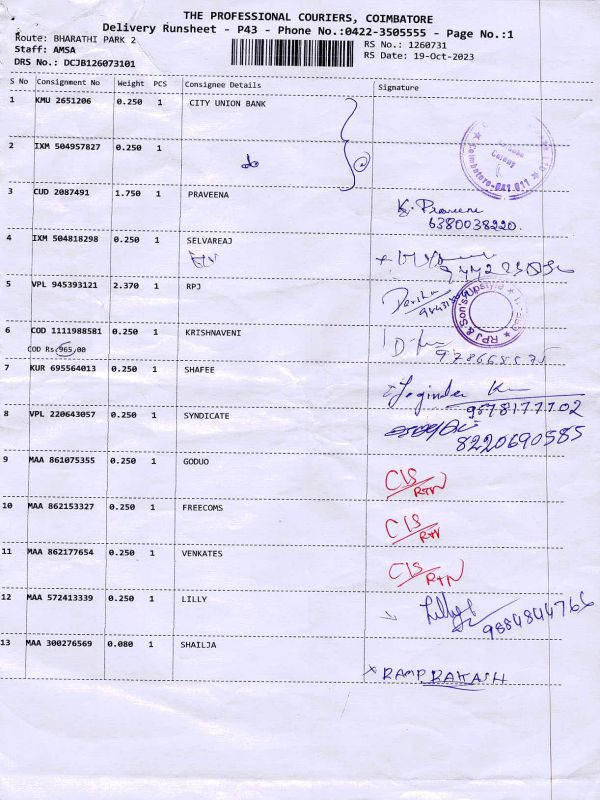 THE PROFESSIONAL COURIERS, COIMBATORE
Delivery Runsheet - P43 - Phone No.:0422-3505555 - Page No.:1
Route: BHARATHI PARK 2 RS No.: 1260731
Staff: AMSA RS Date: 19-Oct-2023
DRS No.: DCJB126073101
S No Consignment No Weight PCS Consignee Details Signature
1 KMU 2651206 0.250 1 CITY UNION BANK
2 IXM 504957827 0.250 1 do
Colony
Coimbatore-641 011
3 CUD 2087491 1.750 1 PRAVEENA
K. Praveena
6380038220.
4 IXM 504818298 0.250 1 SELVAREAJ
5 VPL 945393121 2.370 1 RPJ
RPJ & Son's
6 COD 1111988581 0.250 1 KRISHNAVENI
COD Rs.965.00
7 KUR 695564013 0.250 1 SHAFEE
Joginder
9578177702
8 VPL 220643057 0.250 1 SYNDICATE
8220690585
9 MAA 861075355 0.250 1 GODUO
CIS
RTN
10 MAA 862153327 0.250 1 FREECOMS
CIS
RTN
11 MAA 862177654 0.250 1 VENKATES
CIS
RTN
12 MAA 572413339 0.250 1 LILLY
Lilly
9884844766
13 MAA 300276569 0.080 1 SHAILJA
RAMPRAKASH